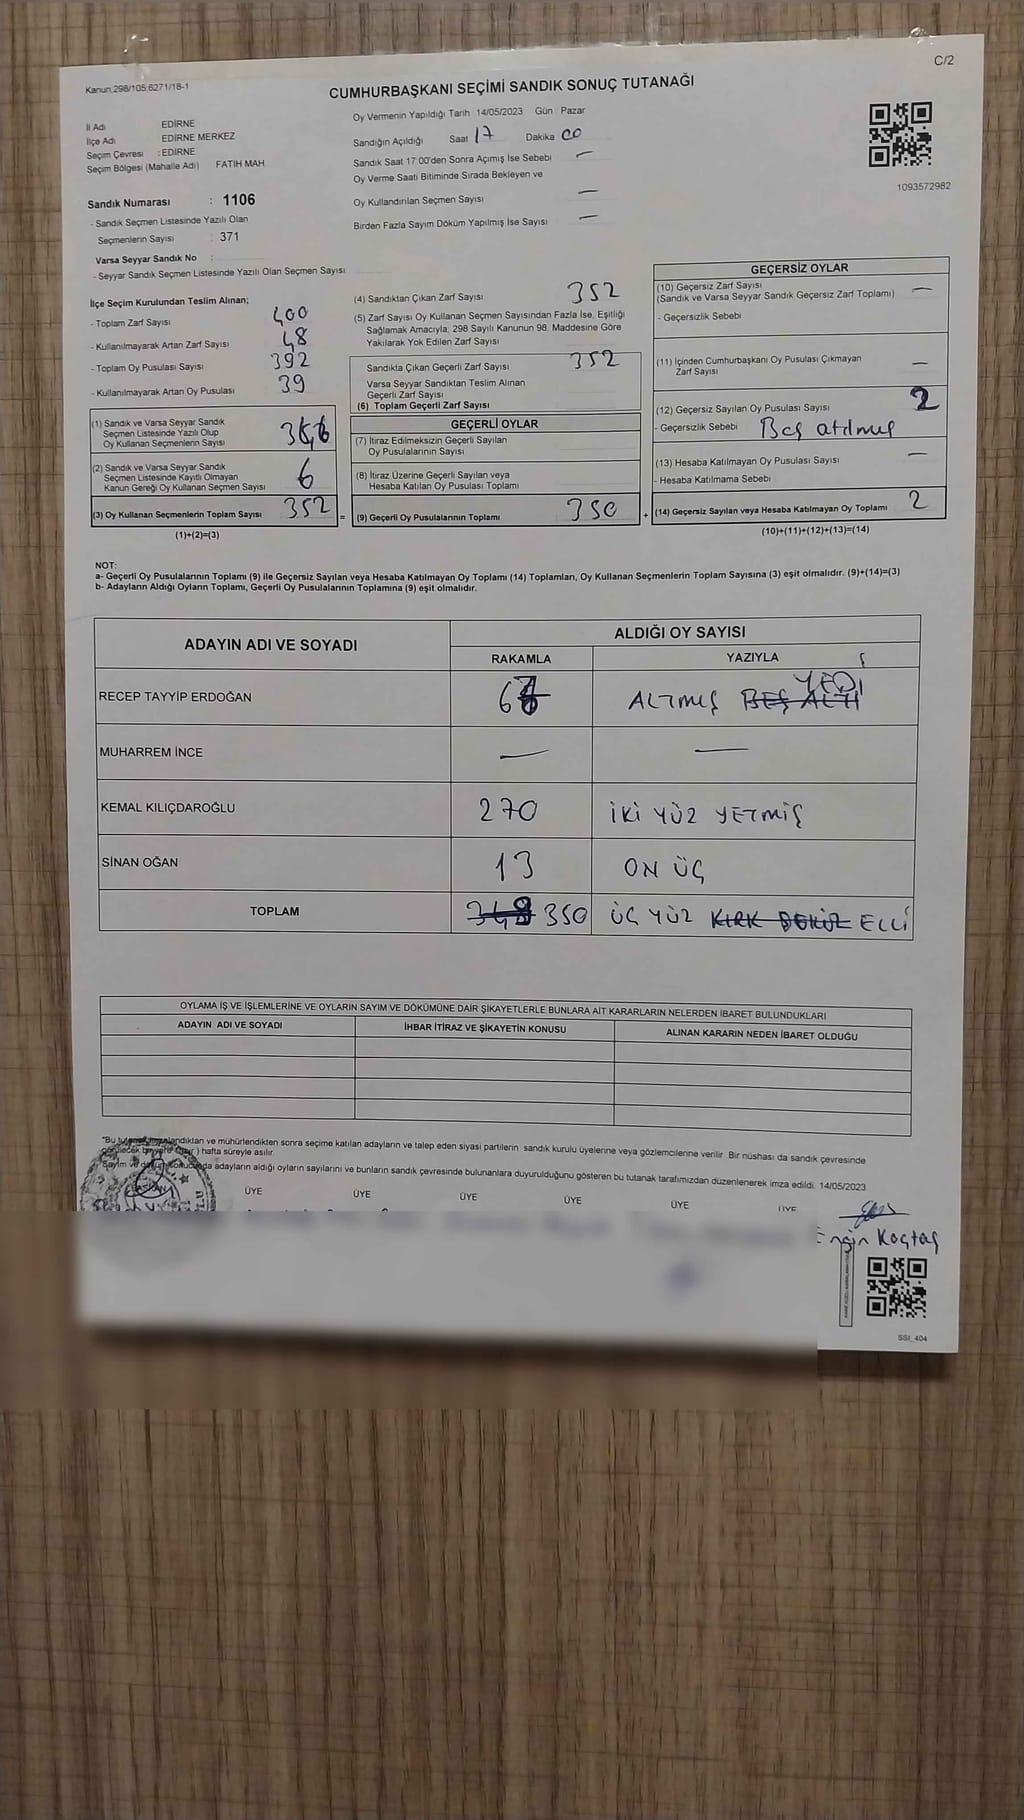 C/2
Kanun:298/105,6271/18-1
CUMHURBAŞKANI SEÇİMİ SANDIK SONUÇ TUTANAĞI
İl Adı EDİRNE
İlçe Adı EDİRNE MERKEZ
Seçim Çevresi : EDİRNE
Seçim Bölgesi (Mahalle Adı) FATİH MAH
Oy Vermenin Yapıldığı Tarih 14/05/2023 Gün Pazar
Sandığın Açıldığı Saat 17 Dakika 00
Sandık Saat 17:00'den Sonra Açımış İse Sebebi —
Oy Verme Saati Bitiminde Sırada Bekleyen ve
Oy Kullandırılan Seçmen Sayısı —
Birden Fazla Sayım Döküm Yapılmış İse Sayısı —
1093572982
Sandık Numarası : 1106
- Sandık Seçmen Listesinde Yazılı Olan
Seçmenlerin Sayısı : 371
Varsa Seyyar Sandık No :
- Seyyar Sandık Seçmen Listesinde Yazılı Olan Seçmen Sayısı
İlçe Seçim Kurulundan Teslim Alınan;
- Toplam Zarf Sayısı 400
- Kullanılmayarak Artan Zarf Sayısı 48
- Toplam Oy Pusulası Sayısı 392
- Kullanılmayarak Artan Oy Pusulası 39
(1) Sandık ve Varsa Seyyar Sandık
Seçmen Listesinde Yazılı Olup
Oy Kullanan Seçmenlerin Sayısı
(2) Sandık ve Varsa Seyyar Sandık
Seçmen Listesinde Kayıtlı Olmayan
Kanun Gereği Oy Kullanan Seçmen Sayısı 6
(3) Oy Kullanan Seçmenlerin Toplam Sayısı 352
(1)+(2)=(3)
(4) Sandıktan Çıkan Zarf Sayısı 352
(5) Zarf Sayısı Oy Kullanan Seçmen Sayısından Fazla İse, Eşitliği
Sağlamak Amacıyla, 298 Sayılı Kanunun 98. Maddesine Göre
Yakılarak Yok Edilen Zarf Sayısı
Sandıkta Çıkan Geçerli Zarf Sayısı 352
Varsa Seyyar Sandıktan Teslim Alınan
Geçerli Zarf Sayısı
(6) Toplam Geçerli Zarf Sayısı
GEÇERLİ OYLAR
(7) İtiraz Edilmeksizin Geçerli Sayılan
Oy Pusulalarının Sayısı
(8) İtiraz Üzerine Geçerli Sayılan veya
Hesaba Katılan Oy Pusulası Toplamı
= (9) Geçerli Oy Pusulalarının Toplamı 350
GEÇERSİZ OYLAR
(10) Geçersiz Zarf Sayısı —
(Sandık ve Varsa Seyyar Sandık Geçersiz Zarf Toplamı)
- Geçersizlik Sebebi
(11) İçinden Cumhurbaşkanı Oy Pusulası Çıkmayan
Zarf Sayısı —
(12) Geçersiz Sayılan Oy Pusulası Sayısı 2
- Geçersizlik Sebebi Boş atılmış
(13) Hesaba Katılmayan Oy Pusulası Sayısı —
- Hesaba Katılmama Sebebi
+ (14) Geçersiz Sayılan veya Hesaba Katılmayan Oy Toplamı 2
(10)+(11)+(12)+(13)=(14)
NOT:
a- Geçerli Oy Pusulalarının Toplamı (9) ile Geçersiz Sayılan veya Hesaba Katılmayan Oy Toplamı (14) Toplamları, Oy Kullanan Seçmenlerin Toplam Sayısına (3) eşit olmalıdır. (9)+(14)=(3)
b- Adayların Aldığı Oyların Toplamı, Geçerli Oy Pusulalarının Toplamına (9) eşit olmalıdır.
ADAYIN ADI VE SOYADI ALDIĞI OY SAYISI
RAKAMLA YAZIYLA
RECEP TAYYİP ERDOĞAN 67 ALTMIŞ BEŞ ALTI YEDİ
MUHARREM İNCE — —
KEMAL KILIÇDAROĞLU 270 İKİ YÜZ YETMİŞ
SİNAN OĞAN 13 ON ÜÇ
TOPLAM 350 ÜÇ YÜZ KIRK SEKİZ ELLİ
OYLAMA İŞ VE İŞLEMLERİNE VE OYLARIN SAYIM VE DÖKÜMÜNE DAİR ŞİKAYETLERLE BUNLARA AİT KARARLARIN NELERDEN İBARET BULUNDUKLARI
ADAYIN ADI VE SOYADI İHBAR İTİRAZ VE ŞİKAYETİN KONUSU ALINAN KARARIN NEDEN İBARET OLDUĞU
"Bu imzalandıktan ve mühürlendikten sonra seçime katılan adayların ve talep eden siyasi partilerin sandık kurulu üyelerine veya gözlemcilerine verilir. Bir nüshası da sandık çevresinde
hafta süreyle asılır.
Sayım ve adayların aldığı oyların sayılarını ve bunların sandık çevresinde bulunanlara duyurulduğunu gösteren bu tutanak tarafımızdan düzenlenerek imza edildi. 14/05/2023
BAŞKAN ÜYE ÜYE ÜYE ÜYE ÜYE ÜYE
Engin Koçtaş
SSI_404